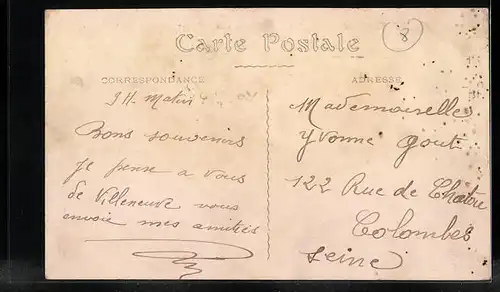 8
Carte Postale
CORRESPONDANCE
ADRESSE
9H. Matin
Bons souvenirs
Je pense a vous
de Villeneuve vous
envoie mes amitiés
Mademoiselle
Yvonne Gout
122 Rue de
Colombes
Seine